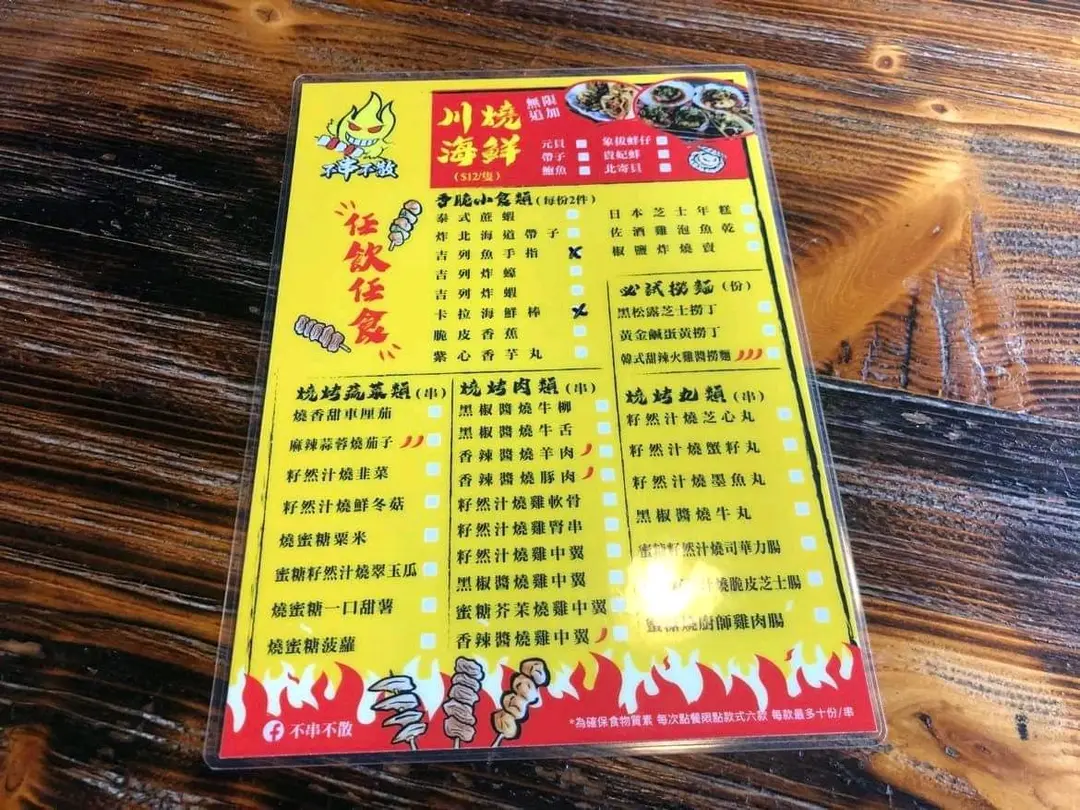 不串不散
川燒
海鮮
($12/隻)
無限
追加
元貝
帶子
鮑魚
象拔蚌仔
貴妃蚌
北寄貝
任飲任食
香脆小食類(每份2件)
泰式蔗蝦
炸北海道帶子
吉列魚手指
吉列炸蠔
吉列炸蝦
卡拉海鮮棒
脆皮香蕉
紫心香芋丸
日本芝士年糕
佐酒雞泡魚乾
椒鹽炸燒賣
必試撈麵(份)
黑松露芝士撈丁
黃金鹹蛋黃撈丁
韓式甜辣火雞醬撈麵
燒烤蔬菜類(串)
燒香甜車厘茄
麻辣蒜蓉燒茄子
籽然汁燒韭菜
籽然汁燒鮮冬菇
燒蜜糖粟米
蜜糖籽然汁燒翠玉瓜
燒蜜糖一口甜薯
燒蜜糖菠蘿
燒烤肉類(串)
黑椒醬燒牛柳
黑椒醬燒牛舌
香辣醬燒羊肉
香辣醬燒豚肉
籽然汁燒雞軟骨
籽然汁燒雞腎串
籽然汁燒雞中翼
黑椒醬燒雞中翼
蜜糖芥茉燒雞中翼
香辣醬燒雞中翼
燒烤丸類(串)
籽然汁燒芝心丸
籽然汁燒蟹籽丸
籽然汁燒墨魚丸
黑椒醬燒牛丸
蜜糖籽然汁燒司華力腸
汁燒脆皮芝士腸
燒廚師雞肉腸
不串不散
*為確保食物質素 每次點餐限點款式六款 每款最多十份/串